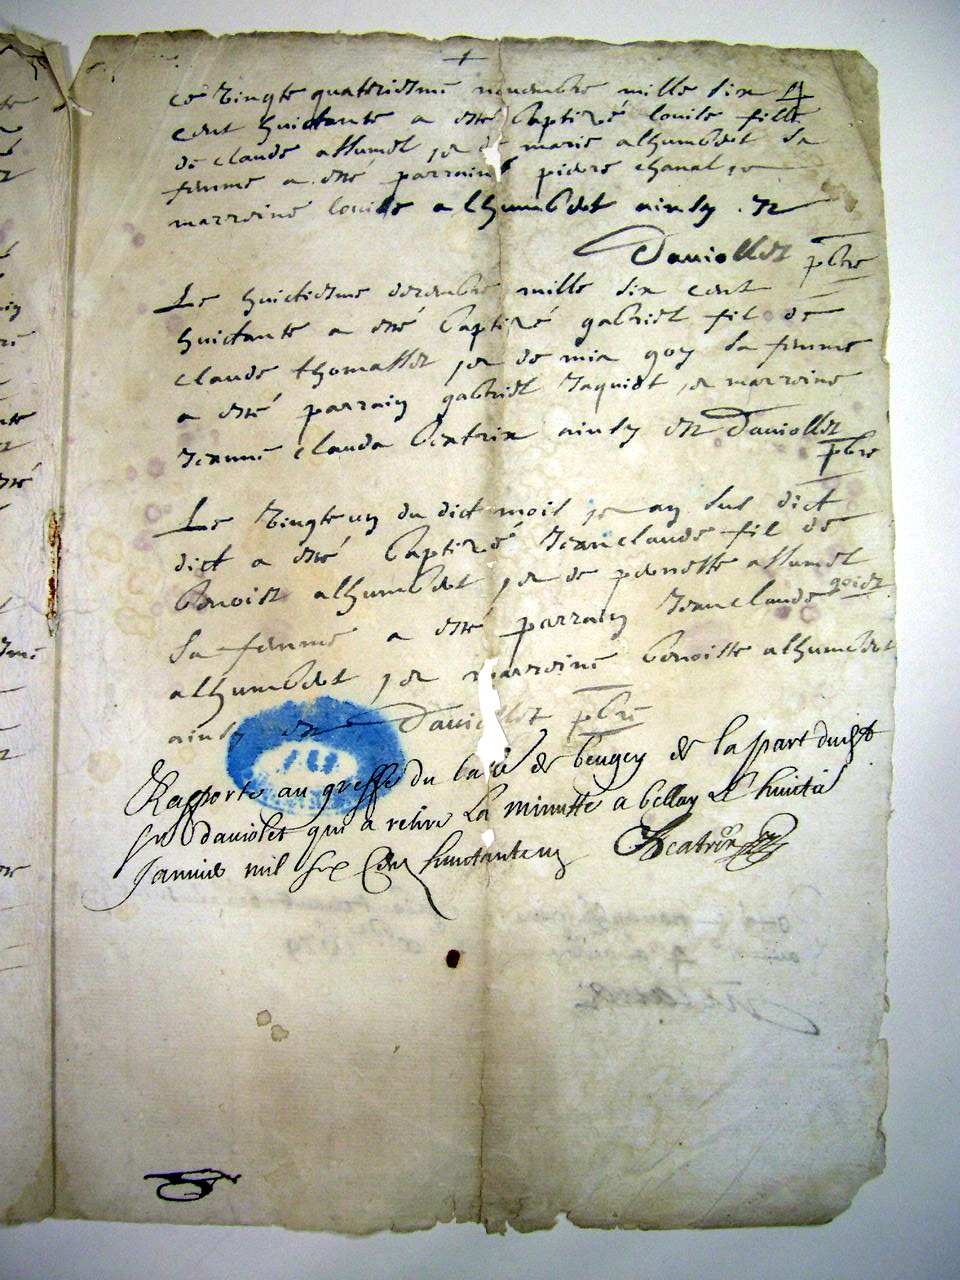 ce vingte quatriesme novembre mille six
cent huictante a esté baptizé louise fille
de claude assumel et de marie alhumbert sa
femme a esté parrains pierre chanal et
marreine louise alhumbert ainsy est
Daviollet pbre
Le huictiesme decembre mille six cent
huictante a esté baptizé gabriel fil de
claude thomasset et de mia goy sa femme
a esté parrain gabriel Jaquiet et marreine
Jeanne clauda beatrix ainsy est Daviollet
pbre
Le vingte un du dict mois et an sus dict
dict a esté baptizé Jean claude fil de
benoist alhumbert et de pernette assumel
sa femme a esté parrain Jean claude
alhumbert et marreine benoitte alhumbert
ainsy est Daviollet pbre
Rapporté au greffe du de beugey de la part dudit
sr daviolet qui a retiré la minutte a bellay le huictie
Janvie mil six cen huictante un Beatrix